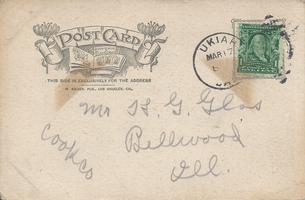 POST CARD
THIS SIDE IS EXCLUSIVELY FOR THE ADDRESS
M. RIEDER, PUB., LOS ANGELES, CAL.
UKIAH
MAR 17
CAL
Mr H. G. Glos
Bellwood
Cook Co
Ill.